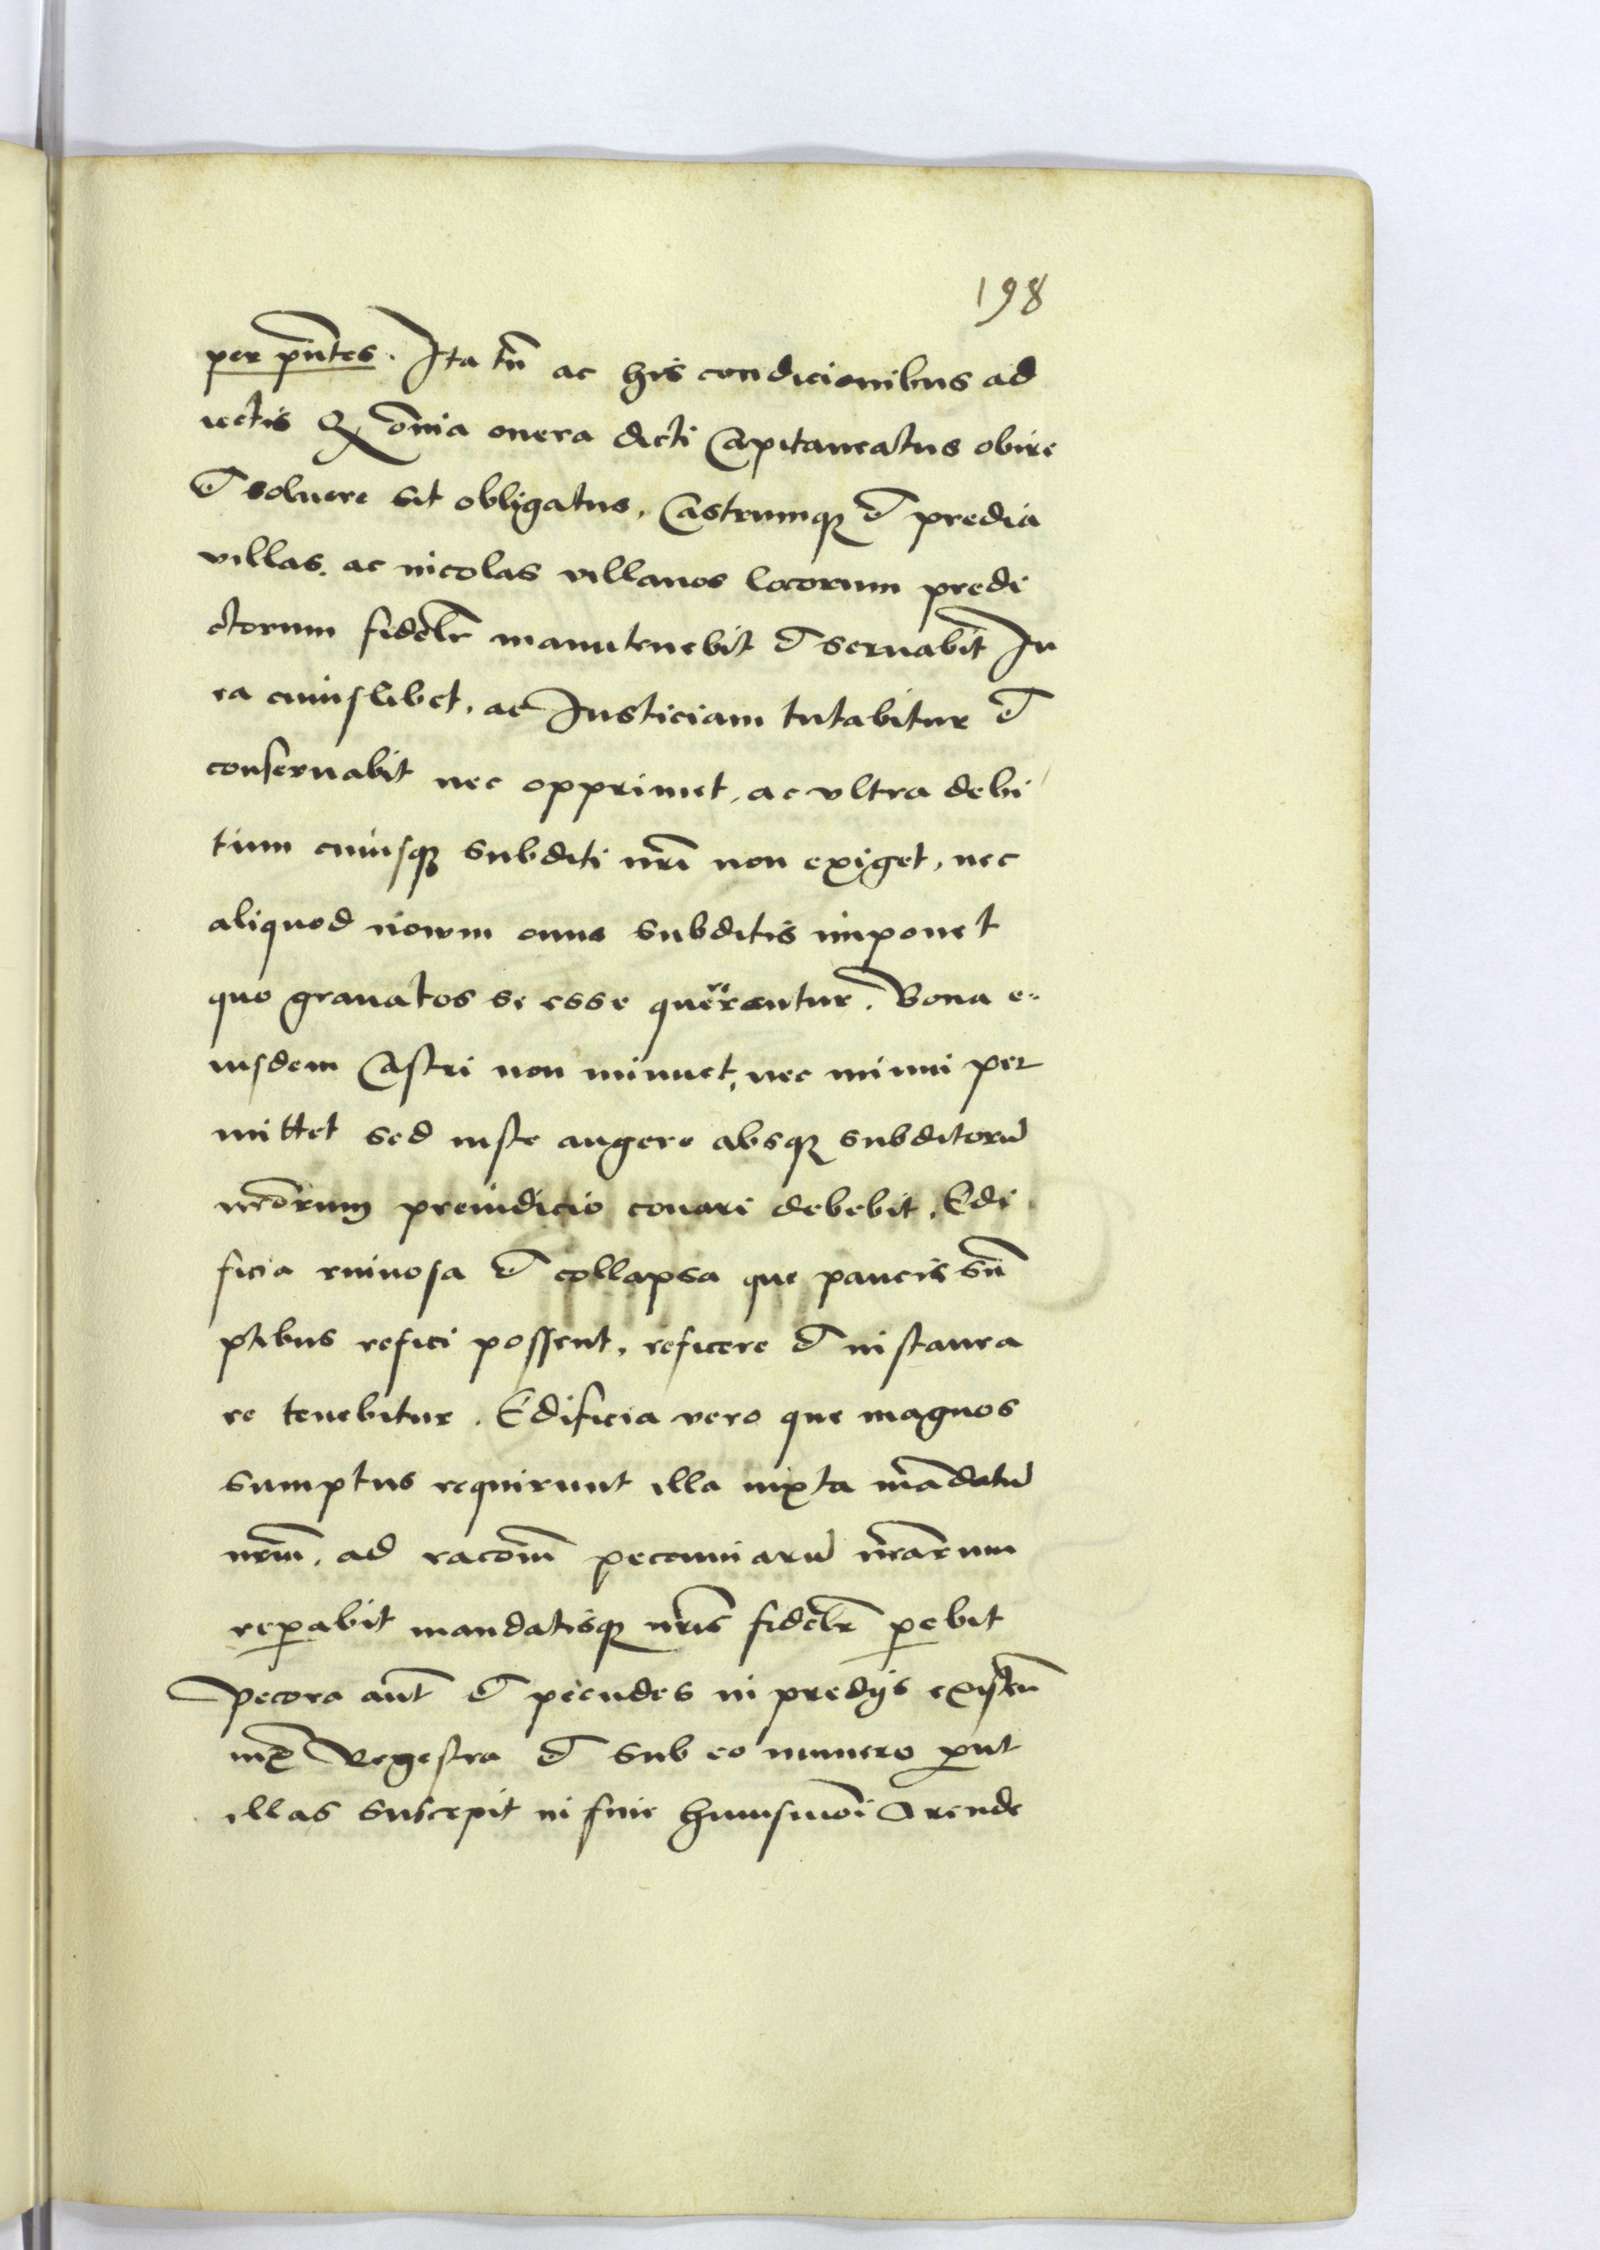 198
per pñtes. Ita tñ ac his condicionibus ad
iectis Qͅ oĩnia onera dicti Capitaneatus obire
et soluere sit obligatus, Castrumqꝫ et predia
villas. ac incolas villanos locorum predi
ctorum fidelr̃ manutenebit et seruabit Iu
ra cuiuslibet, ac Iusticiam tutabitur et
conseruabit nec opprimet, ac vltra debi
tum cuiusqꝫ subditi nr̃i non exiget, nec
aliquod nouum onus subditis imponet
quo grauatos se esse quererentur. Bona e-
iusdem Castri non minuet, nec minui per
mittet sed iuste augere absqꝫ subditorũ
nr̃orum preiudicio conari debebit, Edi
ficia ruinosa et collapsa que paucis sũ
ptibus refici possent, reficere et instaura
re tenebitur. Edificia vero que magnos
sumptus requirunt illa iuxta mãdatũ
nr̃m, ad racõm pecuniarũ nr̃arum
repabit mandatisqꝫ nr̃is fidelr̃ pebit
Pecora aut̃ et pecudes in predijs existeñ
iuxͭ Regestra et sub eo numero put
illas suscepit in fine huiusmõi Arende